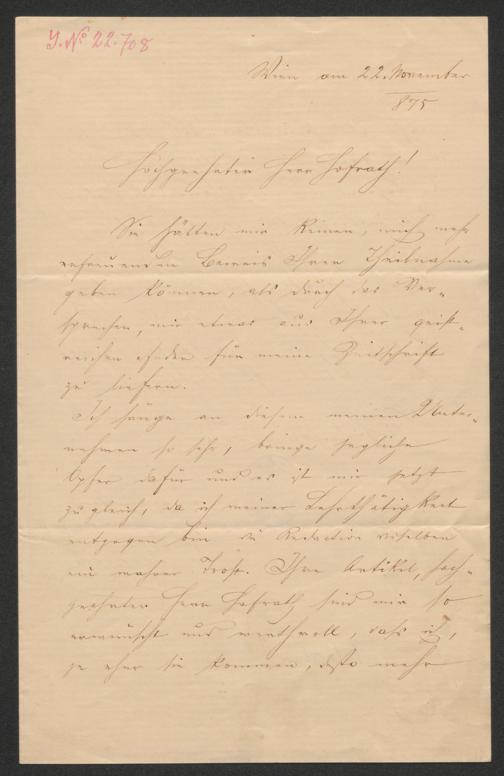 J. No 22.708
Wien am 22. November
875
Hochgeehrter Herr Hofrath!
Sie hätten mir keinen, mich mehr
erfreuenden Beweis Ihrer Theilnahme
geben können, als durch das Ver-
sprechen, mir etwas aus Ihrer geist-
reichen Feder für meine Zeitschrift
zu liefern.
Ich hänge an diesem meinen Unter-
nehmen so sehr, bringe jegliche
Opfer dafür und es ist mir jetzt
zugleich, da ich meiner Lehrthätigkeit
entzogen bin die Redaction desselben
ein wahrer Trost. Ihre Artikel, hoch-
geehrter Herr Hofrath sind mir so
erwünscht und werthvoll, dass ich,
je eher sie kommen, desto mehr